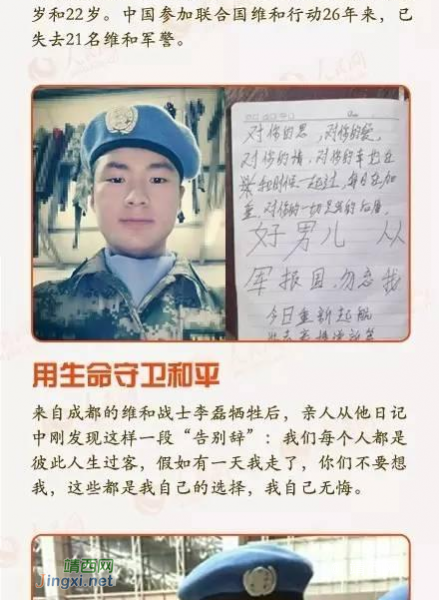 岁和22岁。中国参加联合国维和行动26年来，已
失去21名维和军警。
对你的思，对你的爱，
对你的情，对你的牵挂在
好男儿 从
军报国，勿忘我
今日重新起航
用生命守卫和平
来自成都的维和战士李磊牺牲后，亲人从他日记
中刚发现这样一段“告别辞”：我们每个人都是
彼此人生过客，假如有一天我走了，你们不要想
我，这些都是我自己的选择，我自己无悔。
靖西网
Jingxi.net